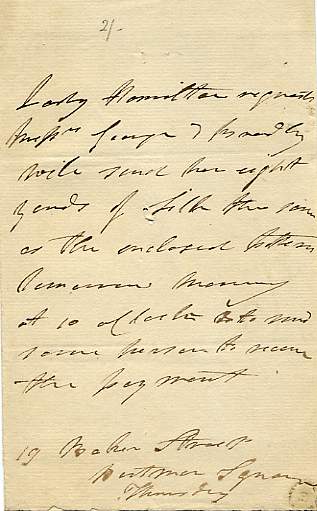 2/-
Lady Hamilton requests
Mess^rs George & Bradly
will send her eight
yards of silk the same
as the enclosed pattern
Tomorrow Morning
at 10 o'Clock to send
some person to receive
the payment
19 Baker Street
Portman Square
Thursday